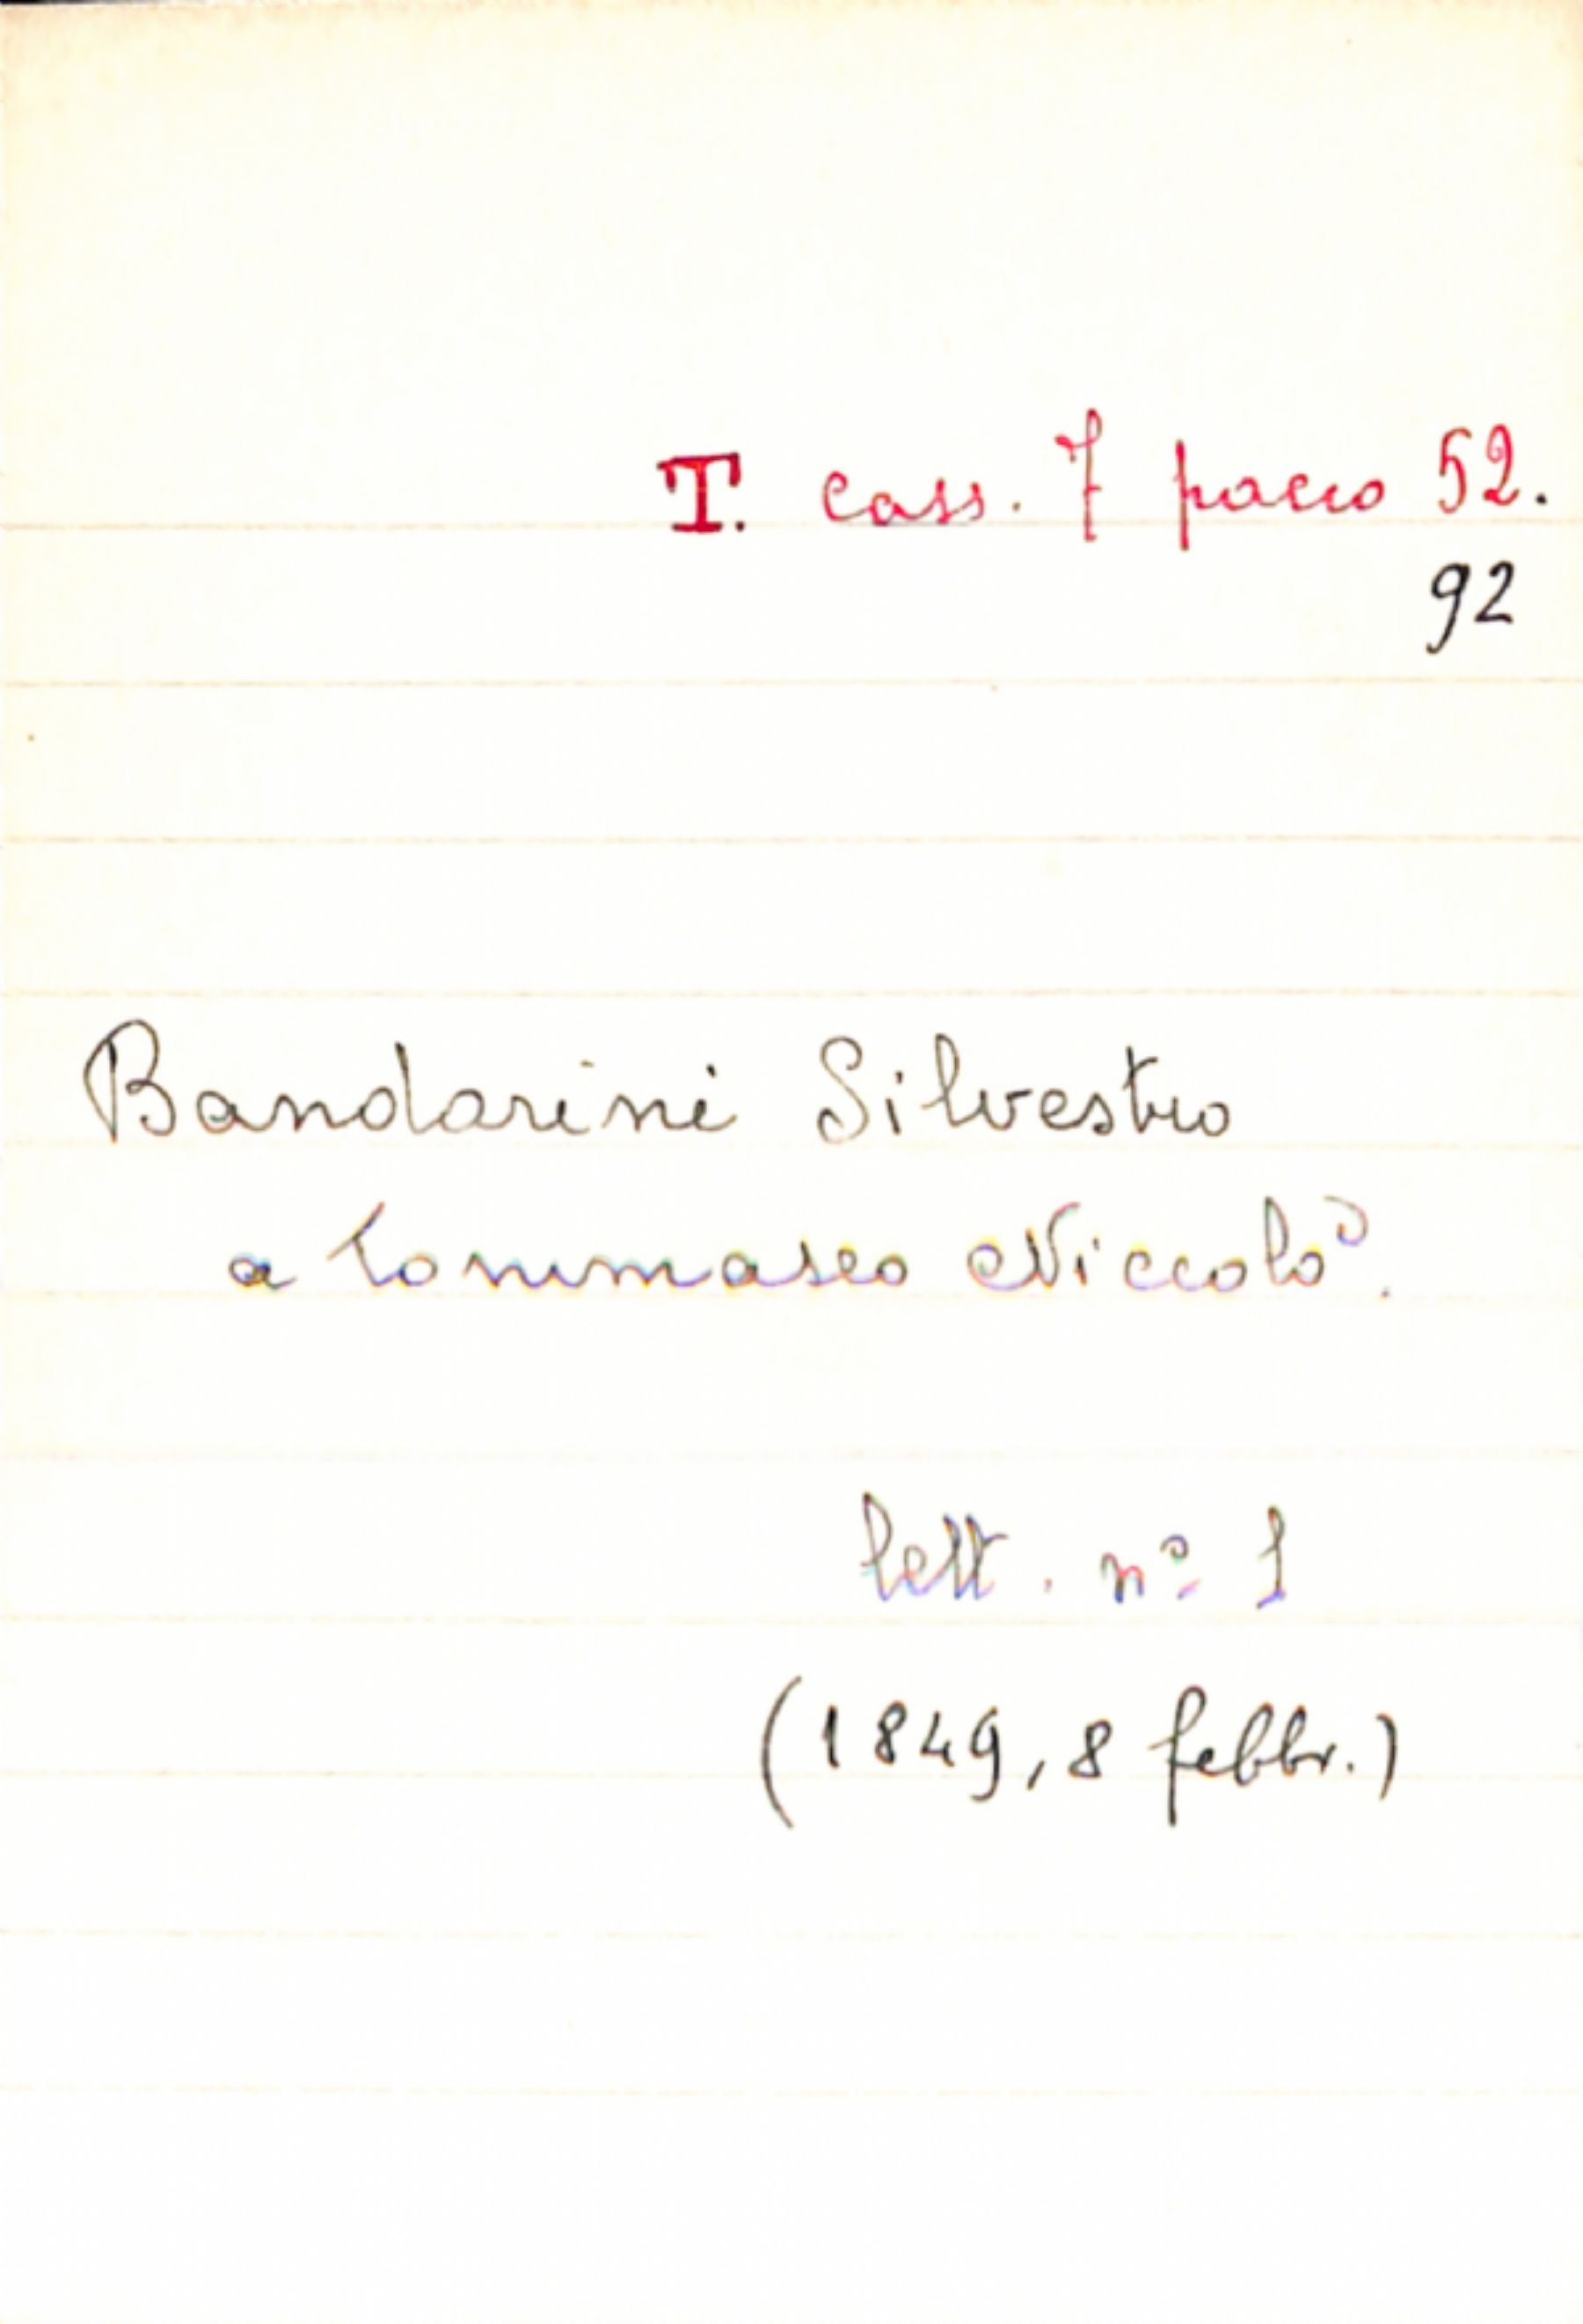 T. cass. 7 pacco 52.
92
Bandarini Silvestro
a Tommaseo Niccolò.
lett. nº 1
(1849, 8 febbr.)